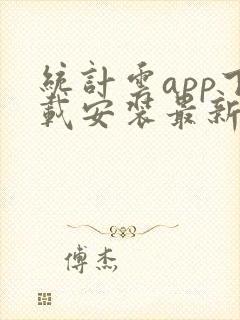 統計雲app下
載安裝最新
傅杰